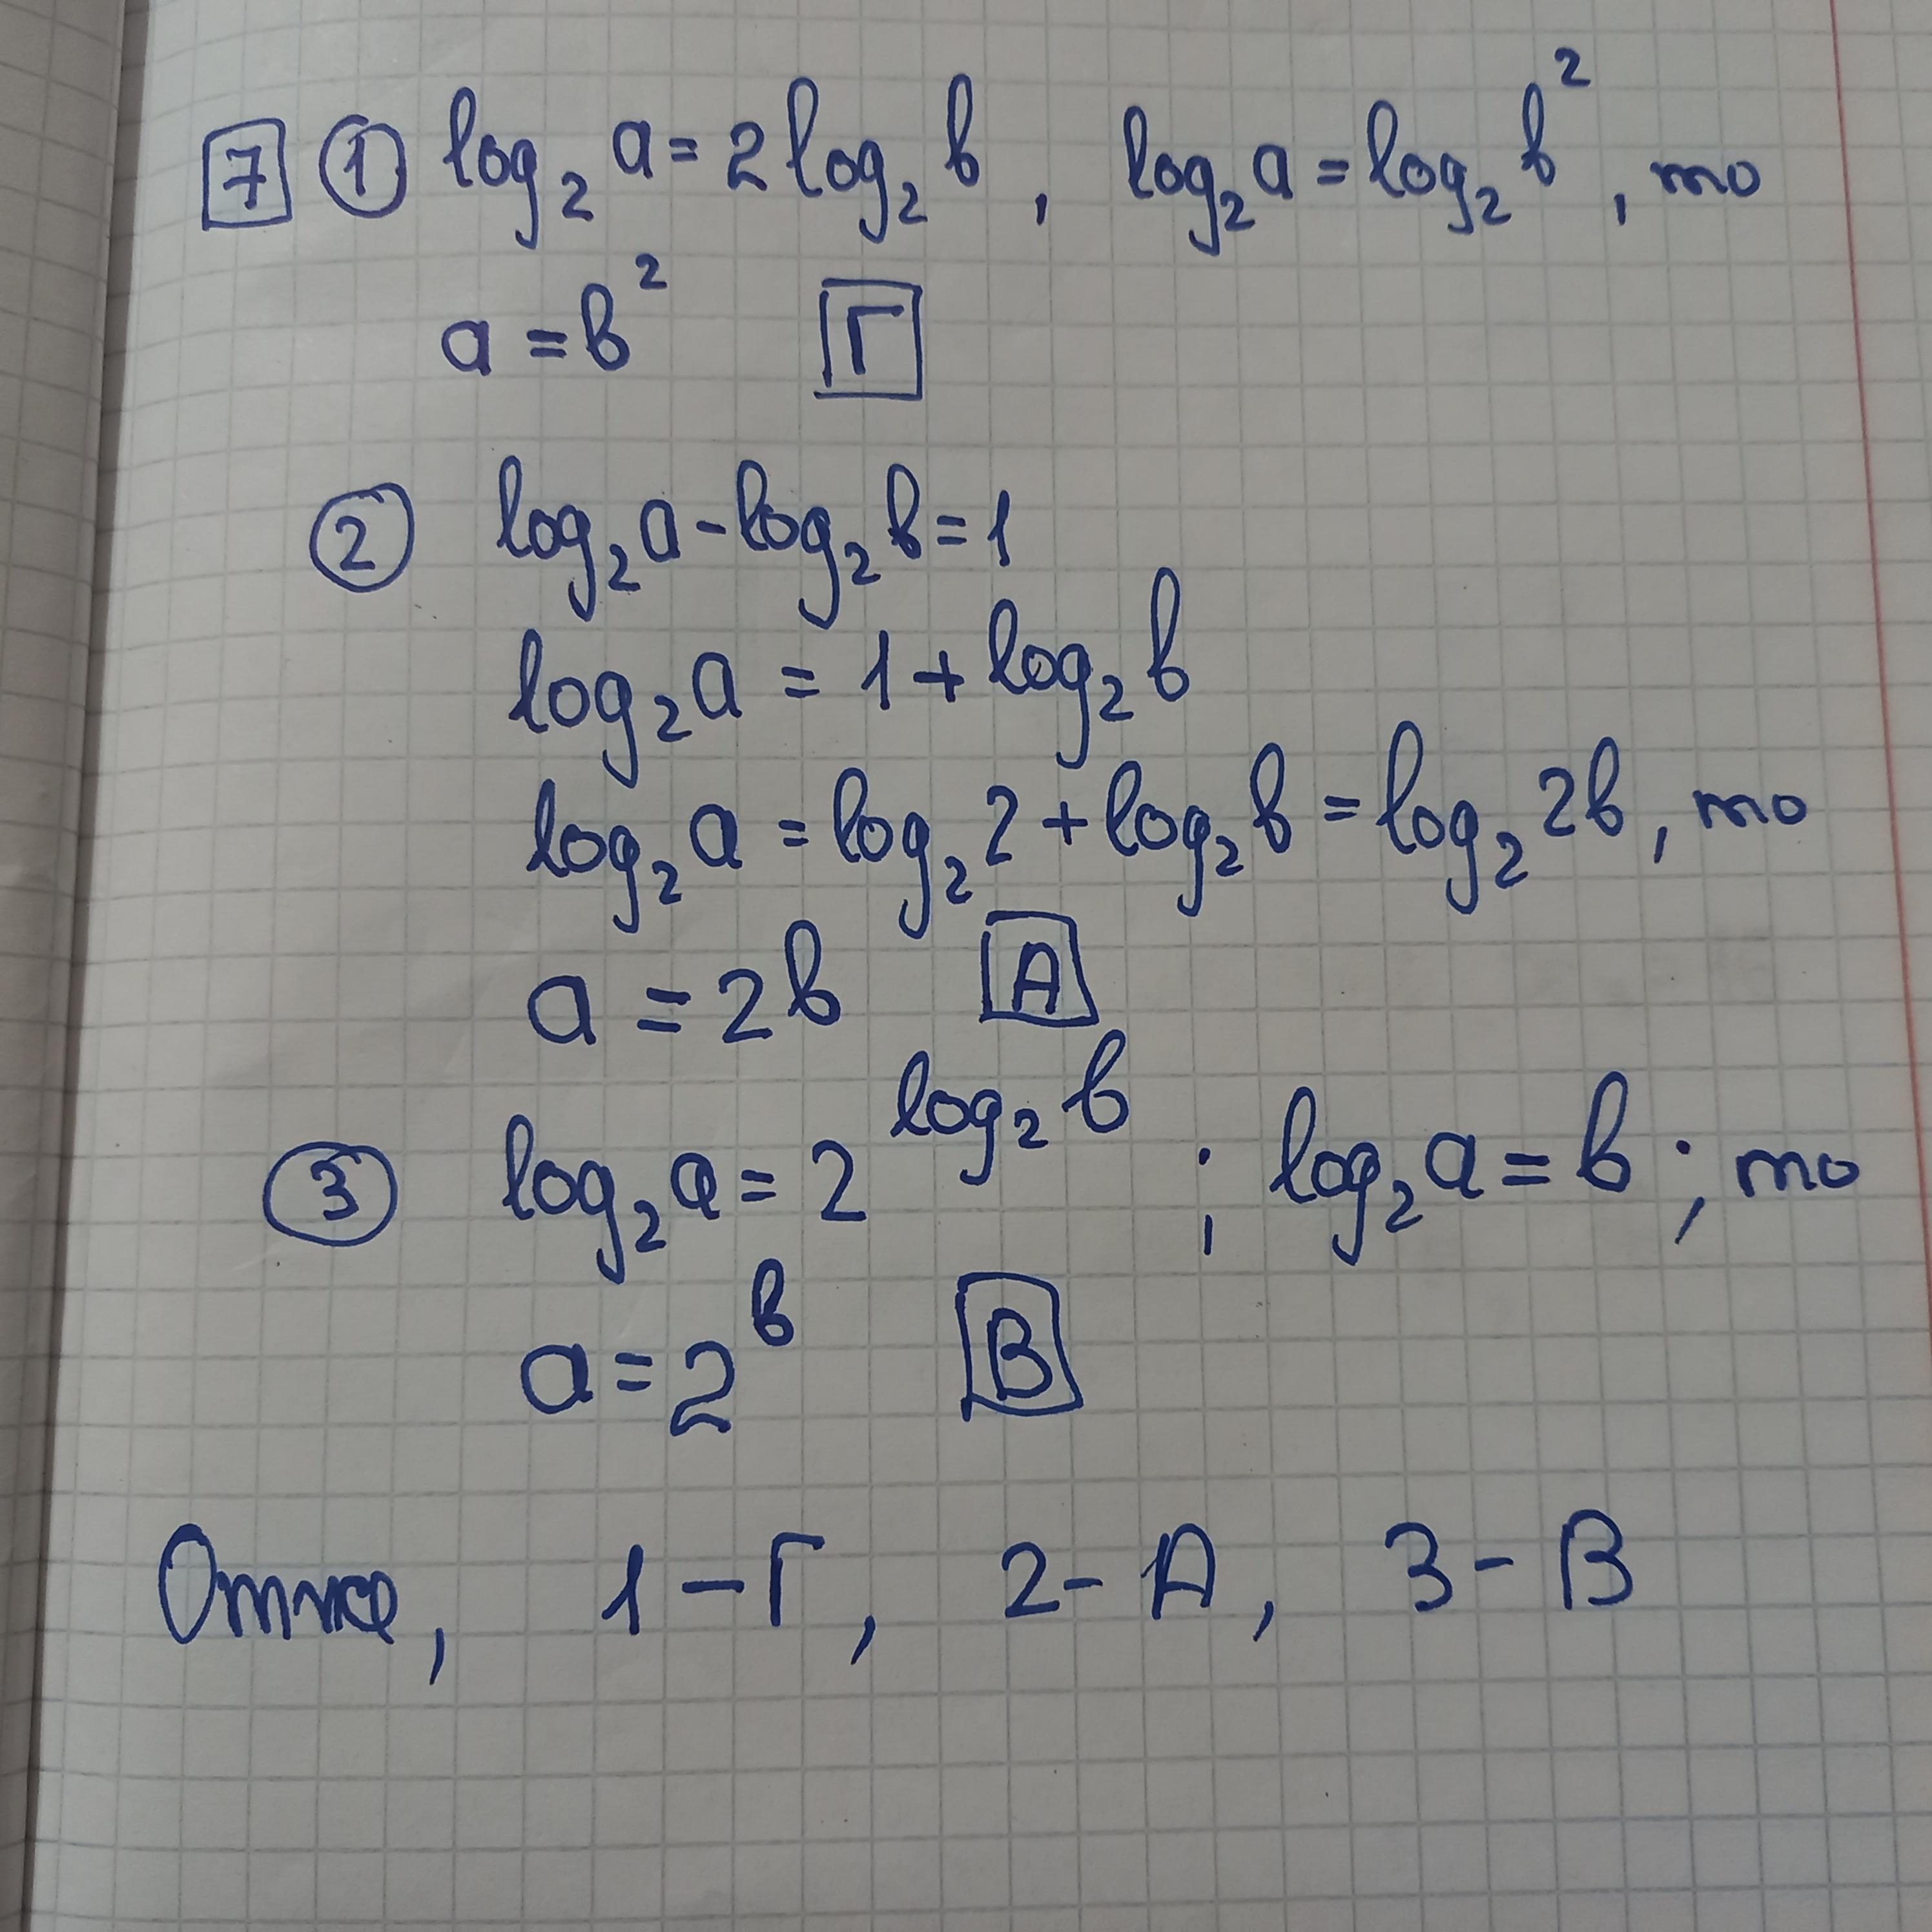 7 ① log₂ a = 2 log₂ b , log₂ a = log₂ b² , то
a = b² Г
② log₂ a - log₂ b = 1
log₂ a = 1 + log₂ b
log₂ a = log₂ 2 + log₂ b = log₂ 2b , то
a = 2b А
③ log₂ a = 2^(log₂ b) ; log₂ a = b ; то
a = 2^b В
Отже, 1 - Г, 2 - А, 3 - В